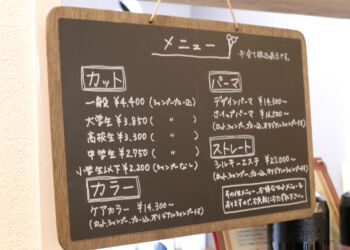 メニュー
※全て税込表示です。
カット
一般 ¥4,400 (シャンプー・ブロー込)
大学生 ¥3,850 ( 〃 )
高校生 ¥3,300 ( 〃 )
中学生 ¥2,750 ( 〃 )
小学生以下 ¥2,200 (シャンプーなし)
カラー
ケアカラー ¥14,300〜
(カット、シャンプー、ブロー込、オリジナルシャンプー付)
パーマ
デザインパーマ ¥14,300〜
ホイップパーマ ¥16,500〜
(カット、シャンプー、ブロー込、オリジナルシャンプー付)
ストレート
シルキーエステ ¥22,000〜
(カット、シャンプー、ブロー込、オリジナルシャンプー付)
その他メニュー、お得なセットメニューも
ありますので、お気軽に